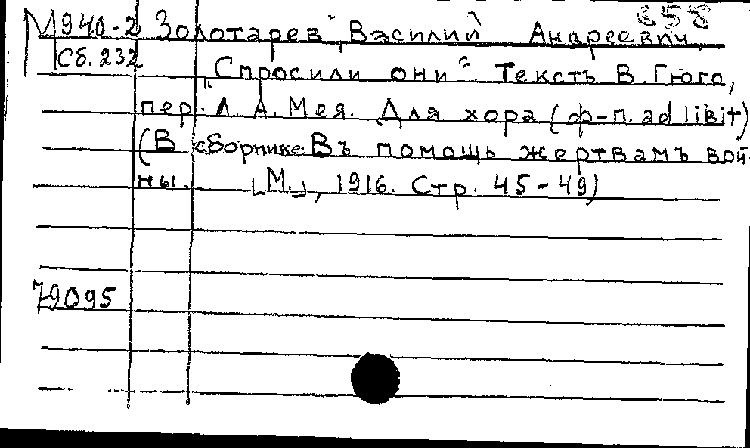 658
М940-2 Золотарев, Василий Андреевич,
Сб. 232 „Спросили они“ Текстъ В. Гюго,
пер. Л. А. Мея. Для хора (ф-п. ad libit)
(В сборнике: Въ помощь жертвамъ вой-
ны. [М.], 1916. Стр. 45-49)
79095